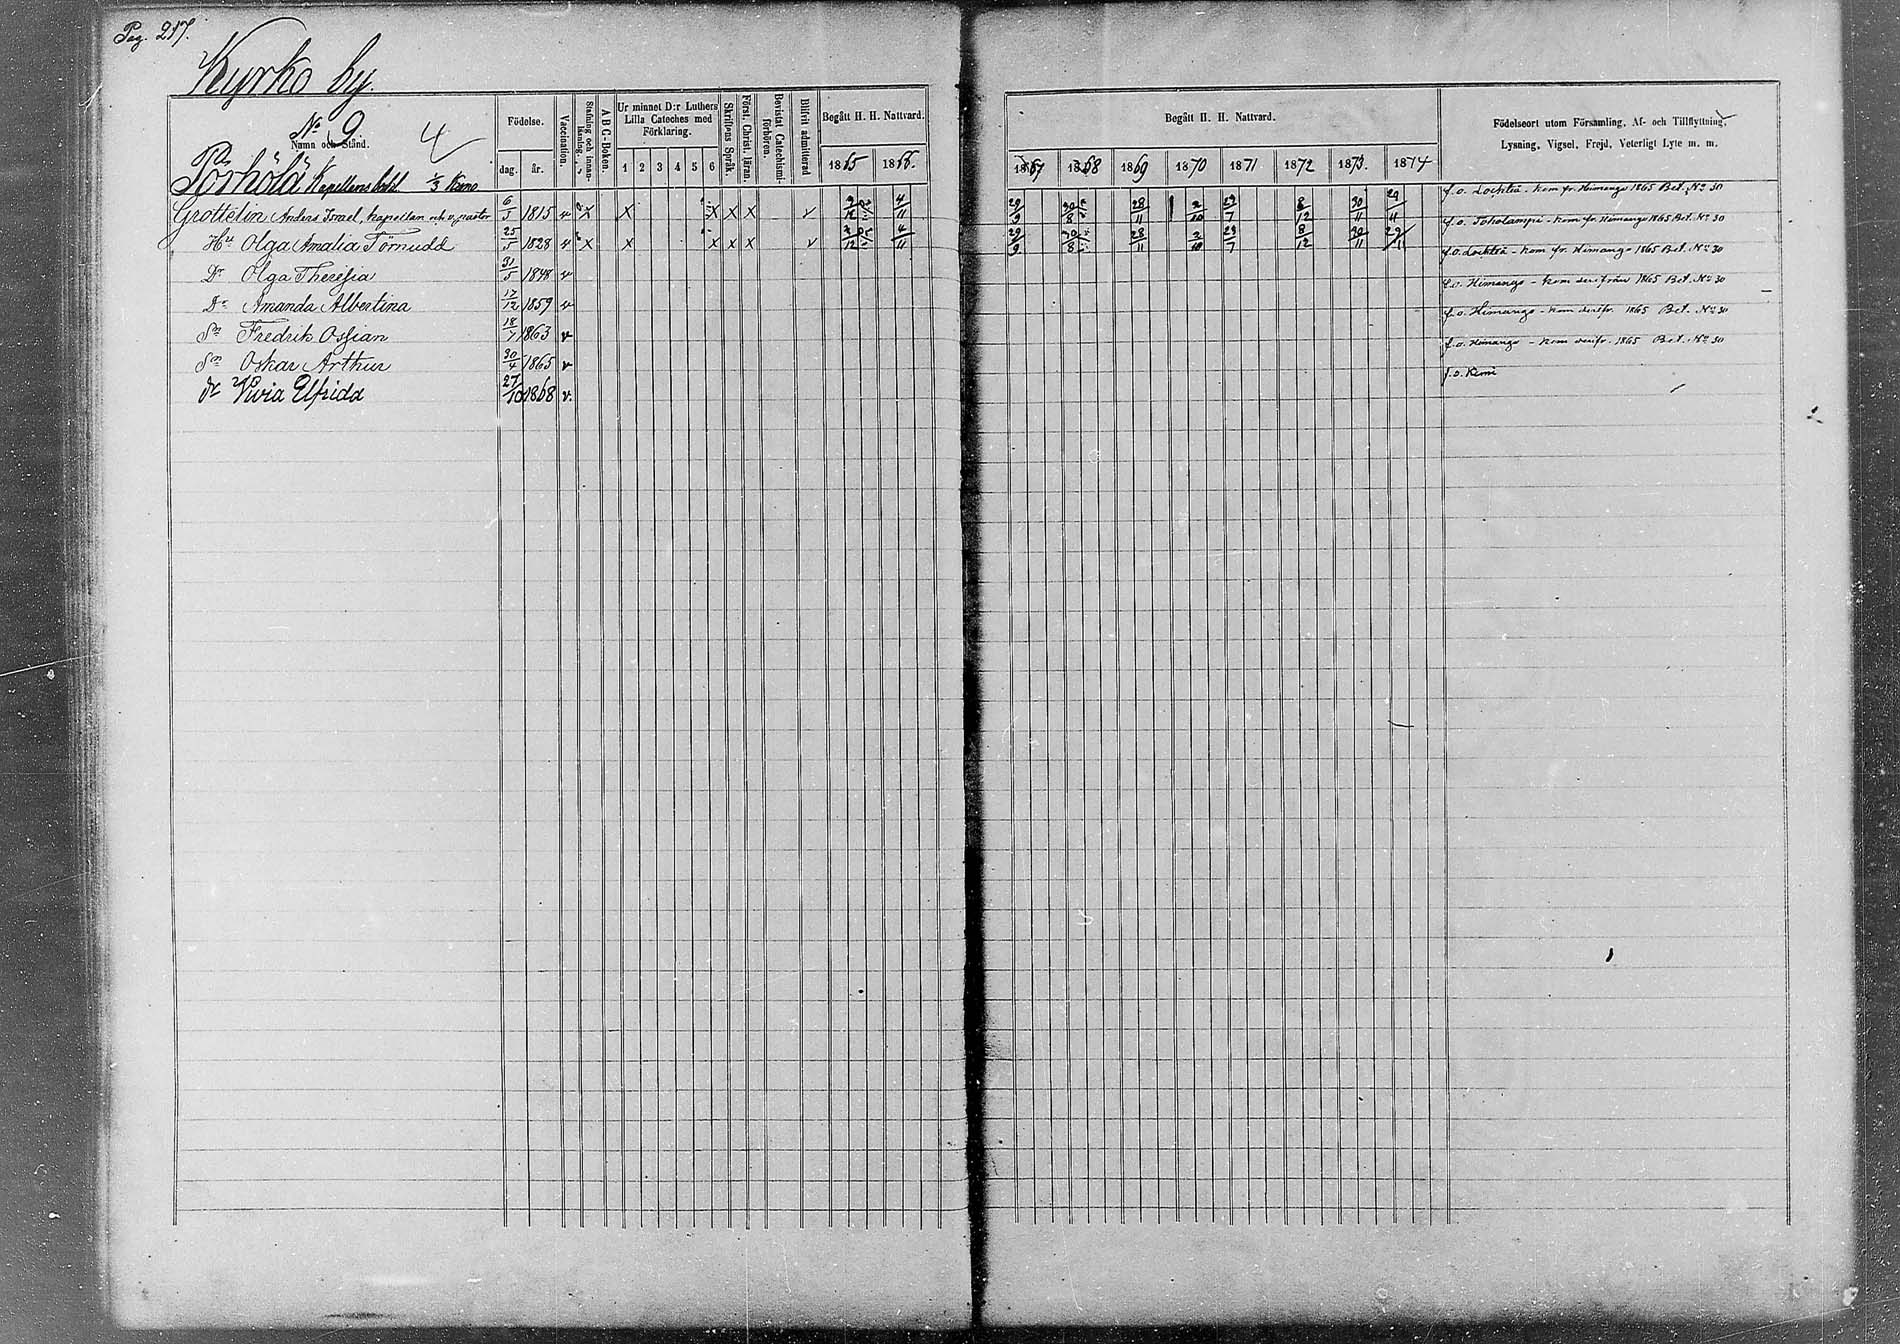 Pag. 217.
Kyrko by.
No 9 4
Namn och Stånd.
Födelse.
dag. år.
Vaccination.
Stafning och innanläsning.
A B C-Boken.
Ur minnet D:r Luthers Lilla Cateches med Förklaring.
1 2 3 4 5 6
Skriftens Språk.
Förest. Christ. läran.
Bevistat Catechismi-förhören.
Blifvit admitterad
Begått H. H. Nattvard.
1865 1866.
Begått H. H. Nattvard.
1867 1868 1869 1870 1871 1872 1873. 1874
Födelseort utom Församling, Af- och Tillflyttning,
Lysning, Vigsel, Frejd, Veterligt Lyte m. m.
Pörhölä Kapellansbohl 1/3
Grottelin Anders Israel, kapellan och v. pastor 6/5 1815 v X X X X X v 4/11 29/9 30/8 28/11 2/10 29/7 8/12 30/11 29/11 f.o. Lochteå - kom fr. Himango 1865 Bet. No 30
Hu Olga Amalia Törnudd 25/5 1828 v X X X X X v 4/11 29/9 30/8 28/11 2/10 29/7 8/12 30/11 29/11 f.o. Toholampi - kom fr. Himango 1865 Bet. No 30
Dr Olga Theresia 31/5 1848 v f.o. Lochteå - kom fr. Himango 1865 Bet. No 30
Dr Amanda Albertina 17/12 1859 v f.o. Himango - kom derifrån 1865 Bet. No 30
Sn Fredrik Ossian 18/7 1863 v f.o. Himango - kom derifr. 1865 Bet. No 30
Sn Oskar Arthur 30/4 1865 v f.o. Himango - kom derifr. 1865 Bet. No 30
dr Vivia Elfrida 27/10 1868 v. f.o. Kemi